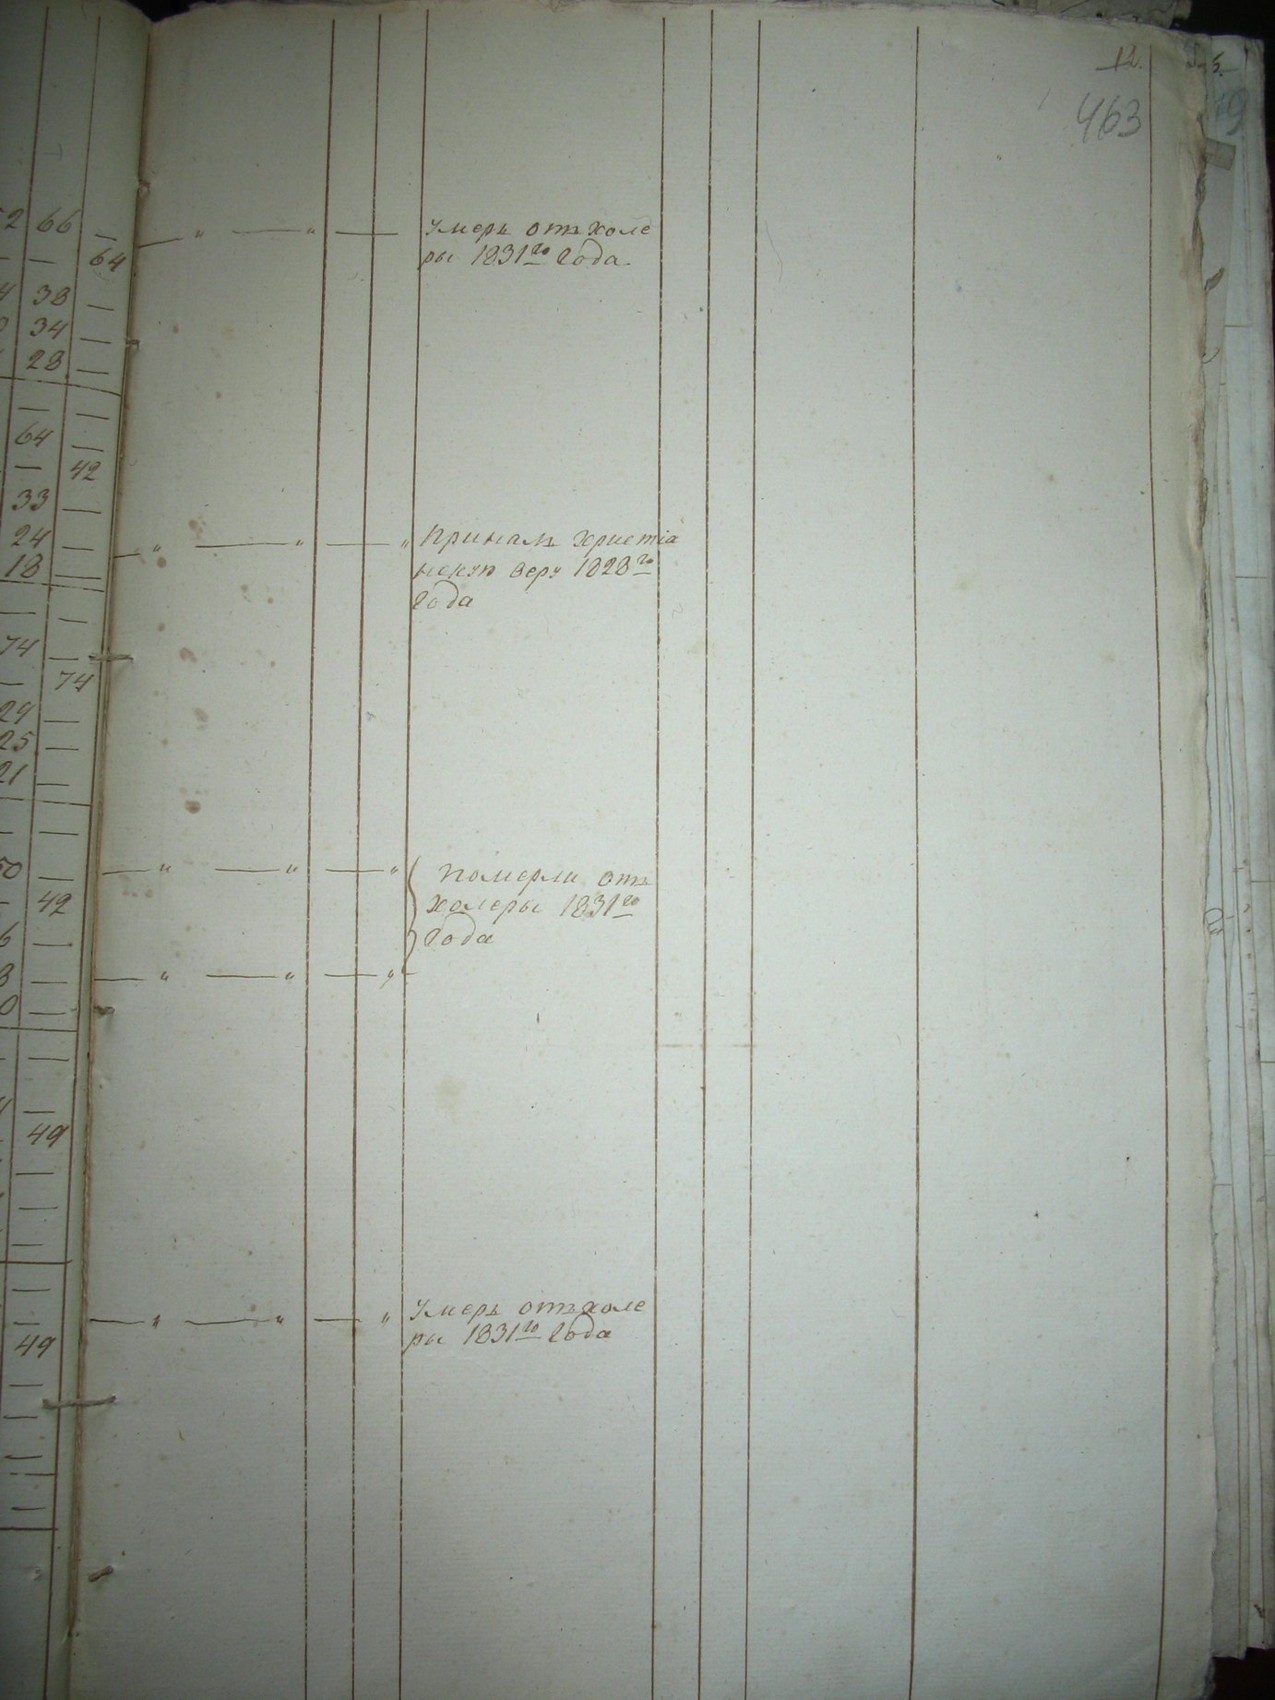 12.
463
2 66 —
— — 64
4 38 —
34 —
28 —
— —
64 —
— 42
33 —
24 —
18 —
— —
74 —
— 74
29 —
25 —
21 —
— —
50 —
— 42
6 —
8 —
0 —
—
—
49
—
—
—
—
—
49
—
—
—
—
— " — " — Умеръ отъ холе
ры 1831го года.
— " — " — " Принялъ христiа
нскую веру 1828го
года
— " — " — " Померли отъ
холеры 1831го
года
— " — " — "
— " — " — " Умеръ отъ холе
ры 1831го года